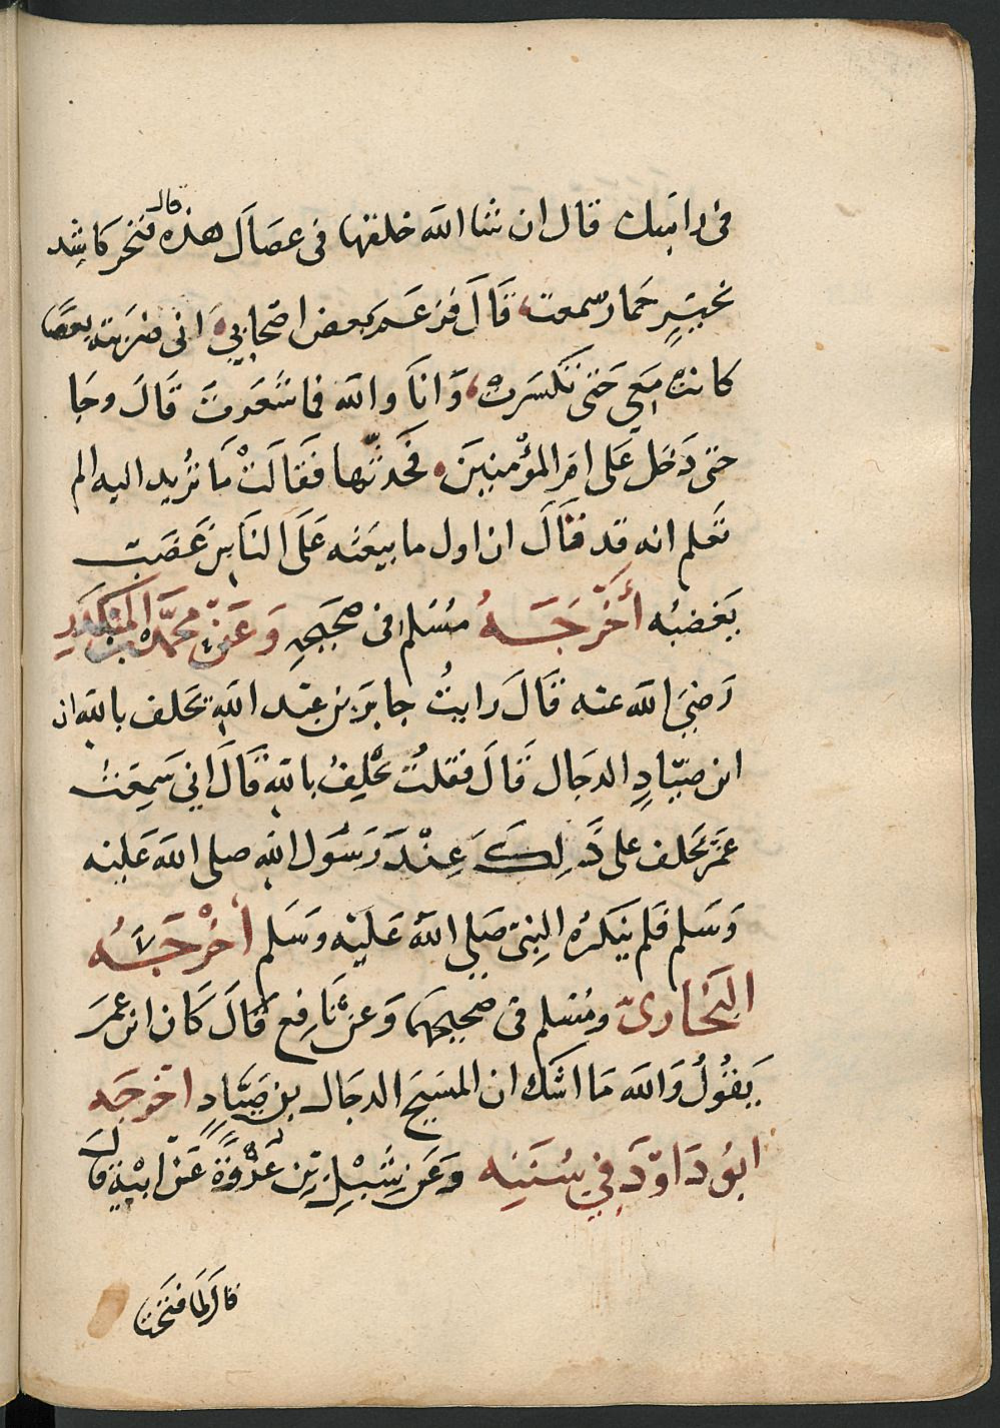 فى راسك قال ان شا الله خلقها فى عصاك هذه قال فنخر كاشد
نخير حمار سمعت قال فزعم بعض اصحابى انى ضربته بعصا
كانت معى حتى تكسرت وانا والله فما شعرت قال وجا
حتى دخل على ام المؤمنين فحدثها فقالت ما تريد اليه الم
تعلم انه قد قال ان اول ما يبعثه على الناس غضب
يغضبه أخرجه مسلم فى صحيحه وعن محمد بن المنكدر
رضى الله عنه قال رايت جابر بن عبد الله يحلف بالله ان
ابن صياد الدجال قال فقلت تحلف بالله قال انى سمعت
عمر يحلف على ذلك عند رسول الله صلى الله عليه
وسلم فلم ينكره النبى صلى الله عليه وسلم أخرجه
البخارى ومسلم فى صحيحهما وعن نافع قال كان ابن عمر
يقول والله ما اشك ان المسيح الدجال بن صياد اخرجه
ابو داود فى سننه وعن شبل بن عروة عن ابيه قال
قال لما فتحنا